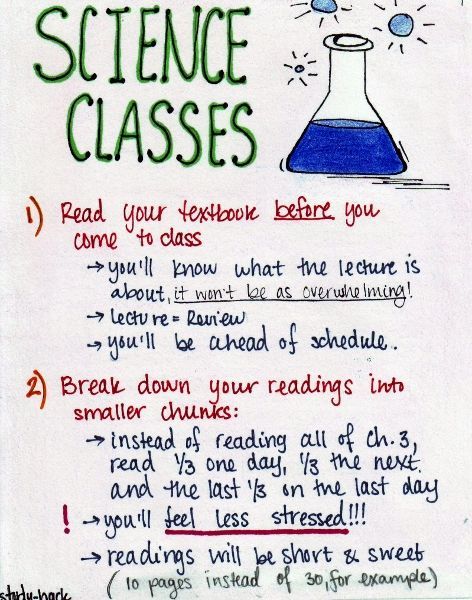 SCIENCE
CLASSES
1) Read your textbook before you
come to class
→ you'll know what the lecture is
about, it won't be as overwhelming!
→ Lecture = Review
→ you'll be ahead of schedule.
2) Break down your readings into
smaller chunks:
→ instead of reading all of ch. 3,
read 1/3 one day, 1/3 the next
and the last 1/3 on the last day
! → you'll feel less stressed!!!
→ readings will be short & sweet
(10 pages instead of 30, for example)
study-hack